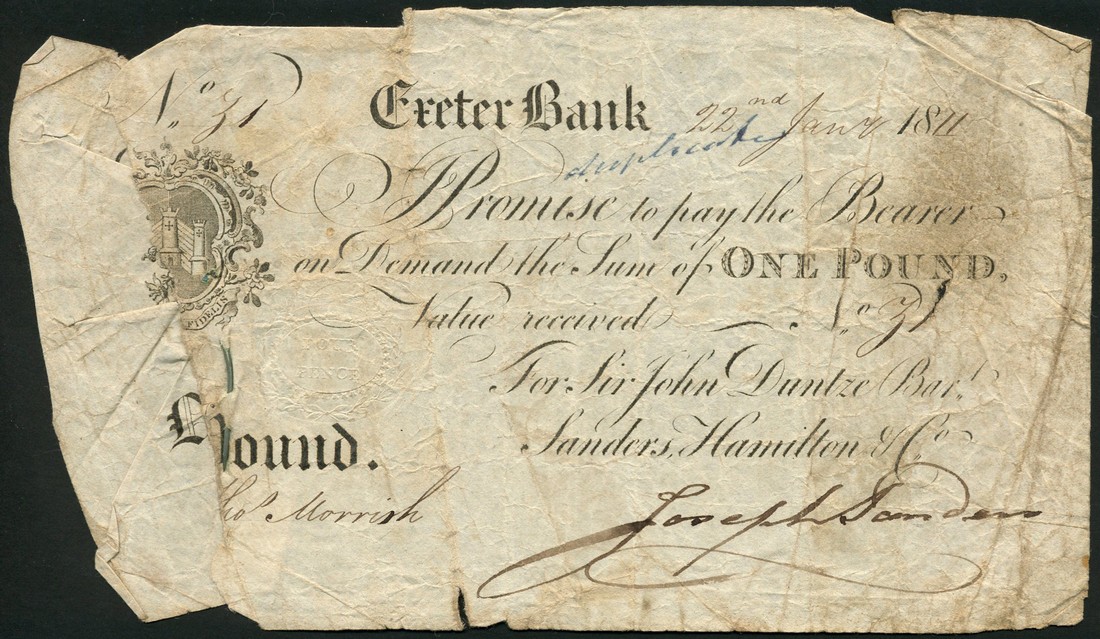 No. 31
Exeter Bank 22nd Jany 1811
duplicate
I Promise to pay the Bearer
on Demand the Sum of ONE POUND,
FIDELIS
Value received No. 31
For Sir John Duntze Bart.
Sanders, Hamilton & Co.
ound.
Thos Morrish
Joseph Sanders